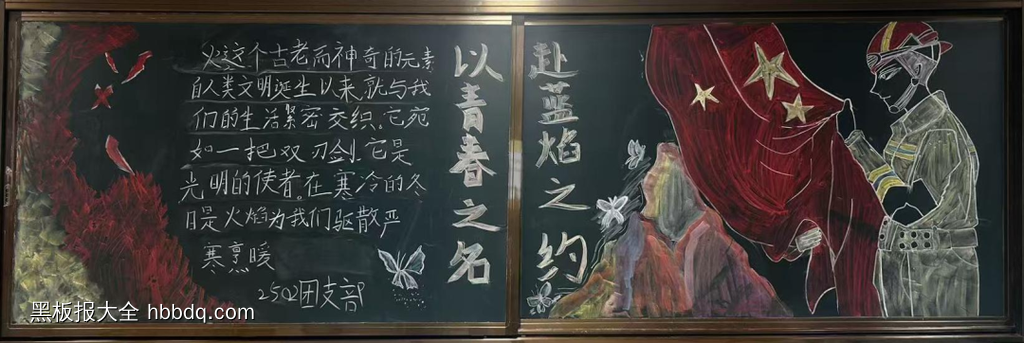 火这个古老而神奇的元素
自人类文明诞生以来,就与我
们的生活紧密交织。它宛
如一把双刃剑.它是
光明的使者。在寒冷的冬
日是火焰为我们驱散严
寒烹暖
2502团支部
以青春之名
赴蓝焰之约
黑板报大全 hbbdq.com